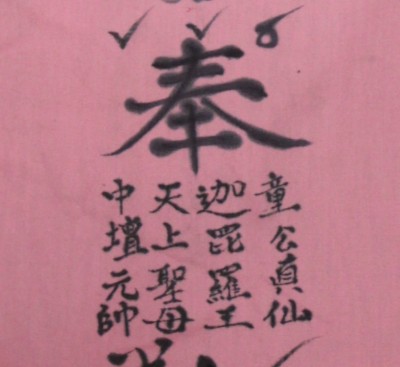 奉
童公真仙
迦毘羅王
天上聖母
中壇元帥